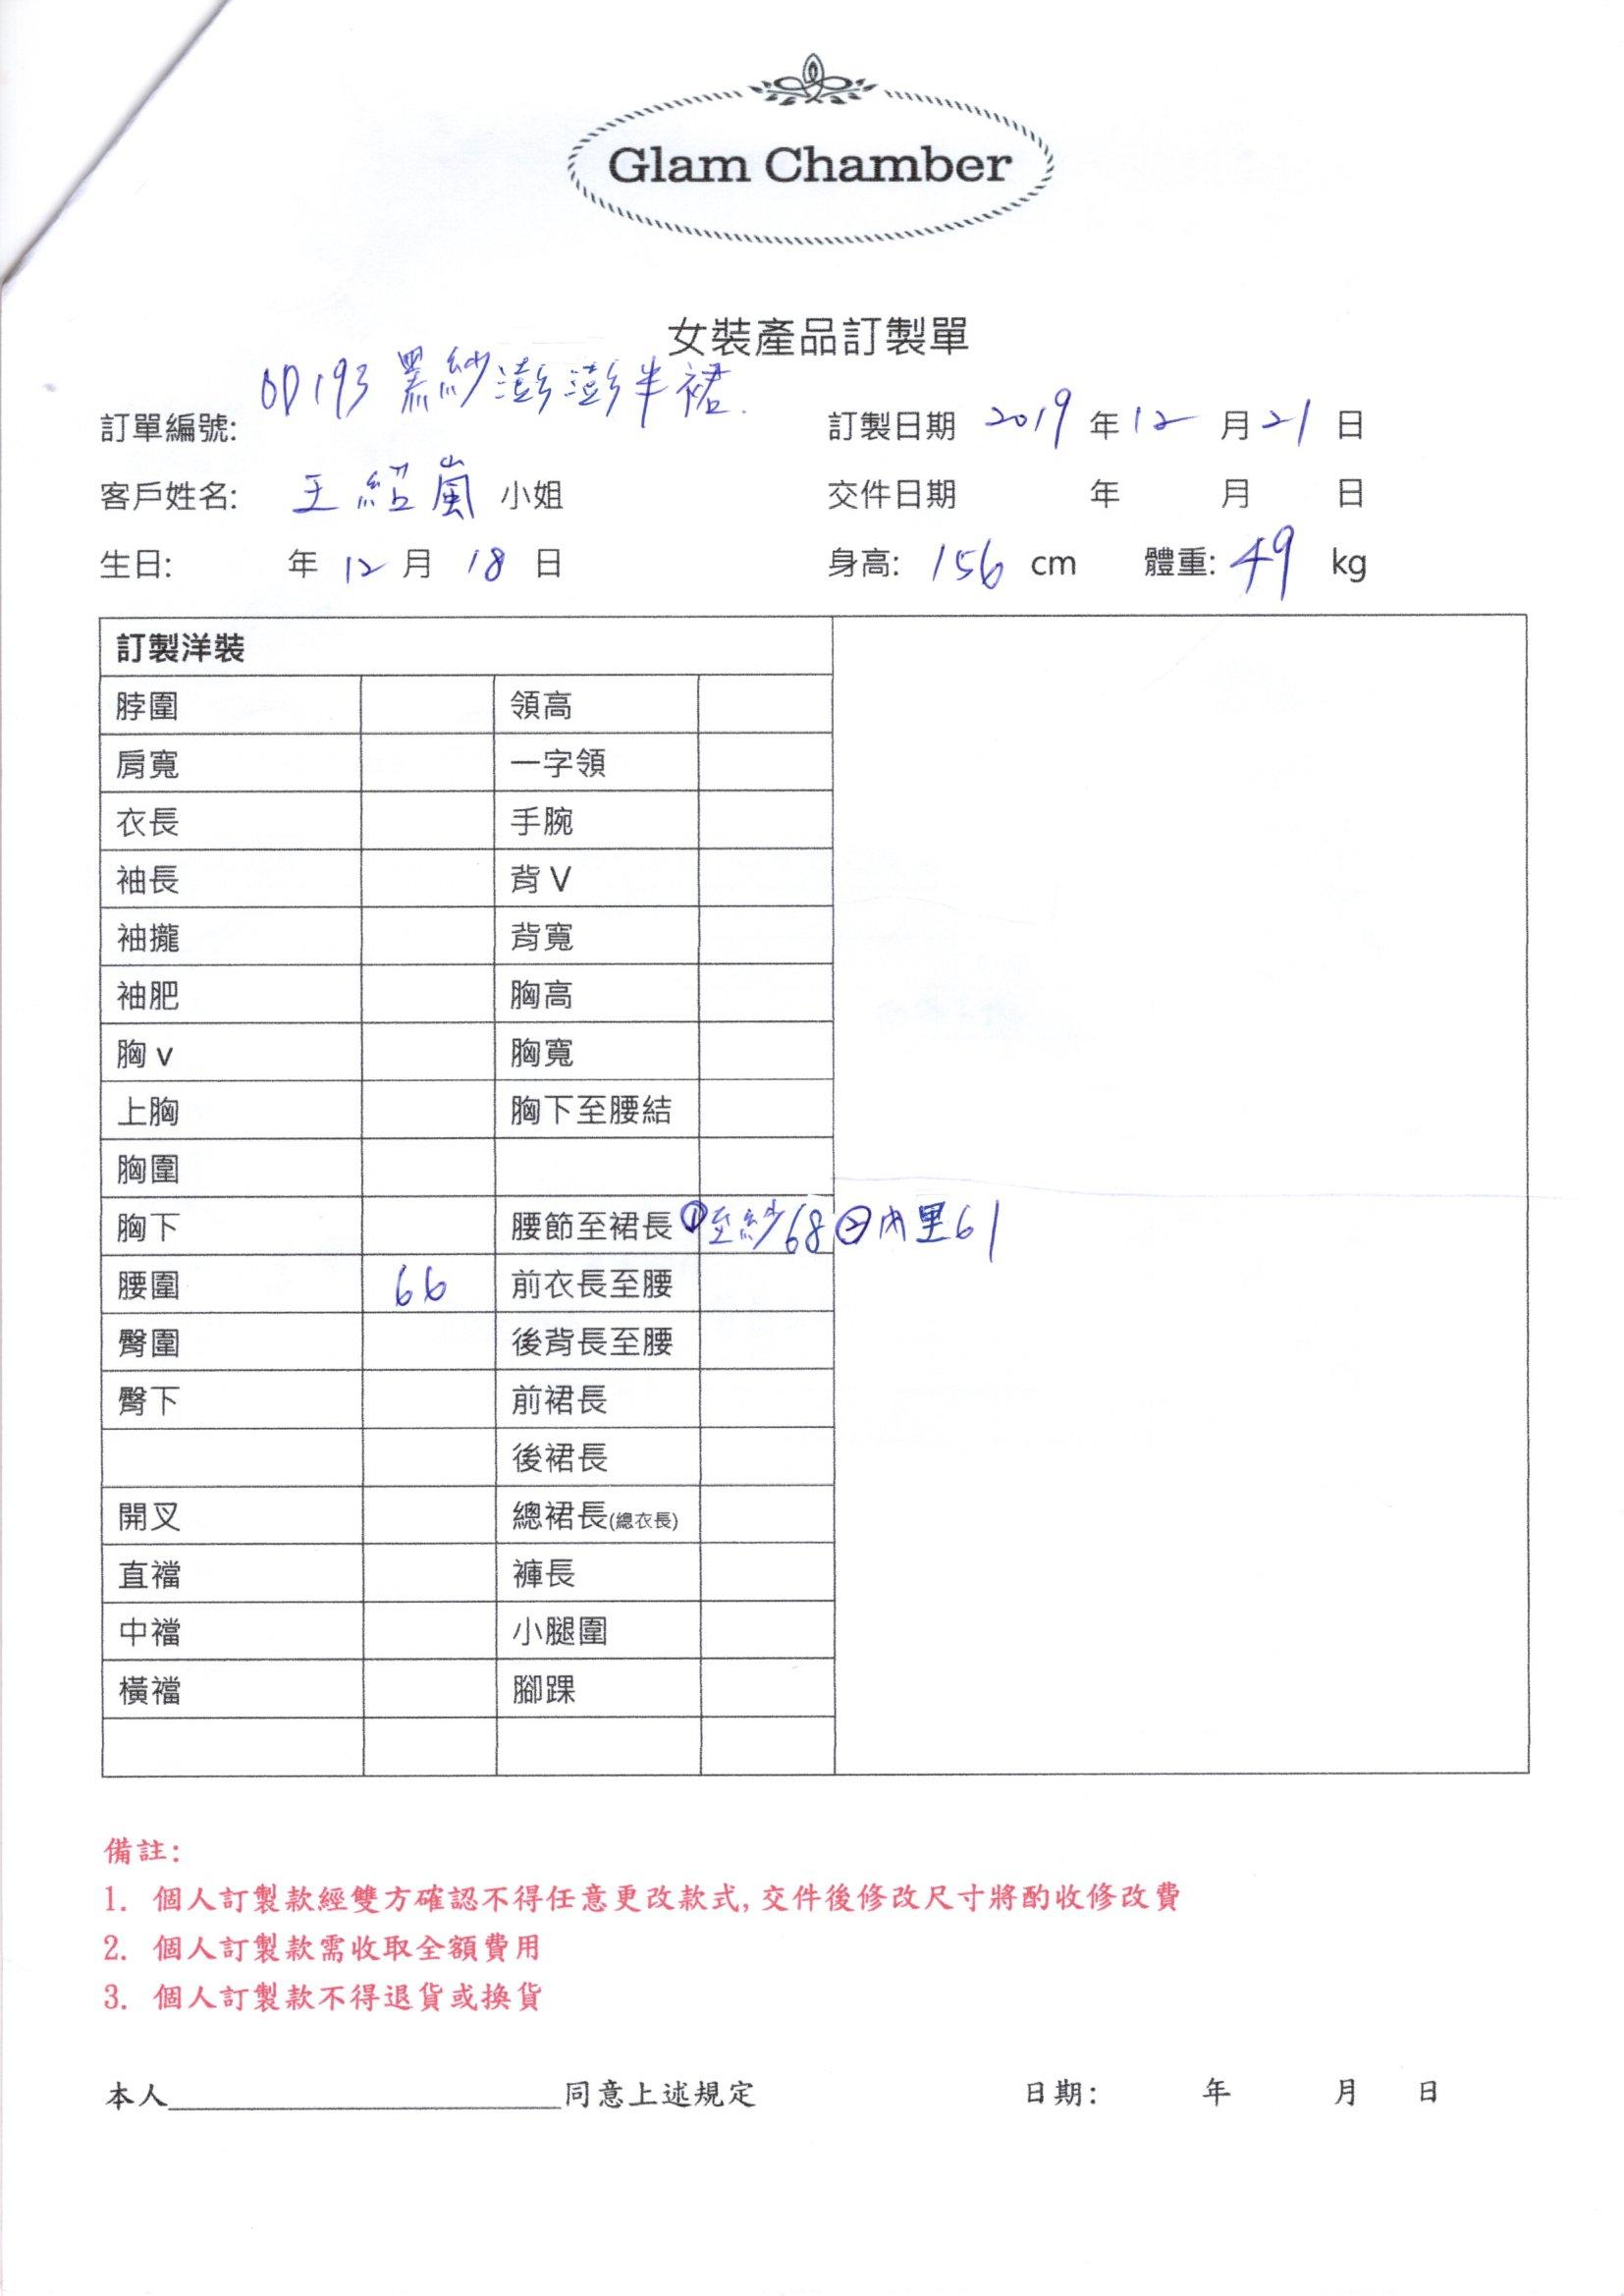 Glam Chamber
女裝產品訂製單
訂單編號: OD193 黑紗澎澎半裙.
訂製日期 2019 年 12 月 21 日
客戶姓名: 王紹嵐 小姐
交件日期 年 月 日
生日: 年 12 月 18 日
身高: 156 cm 體重: 49 kg
訂製洋裝
脖圍 領高
肩寬 一字領
衣長 手腕
袖長 背 V
袖攏 背寬
袖肥 胸高
胸 v 胸寬
上胸 胸下至腰結
胸圍
胸下 腰節至裙長 ①至紗68 ②內里61
腰圍 66 前衣長至腰
臀圍 後背長至腰
臀下 前裙長
後裙長
開叉 總裙長(總衣長)
直襠 褲長
中襠 小腿圍
橫襠 腳踝
備註:
1. 個人訂製款經雙方確認不得任意更改款式, 交件後修改尺寸將酌收修改費
2. 個人訂製款需收取全額費用
3. 個人訂製款不得退貨或換貨
本人____________________同意上述規定 日期: 年 月 日